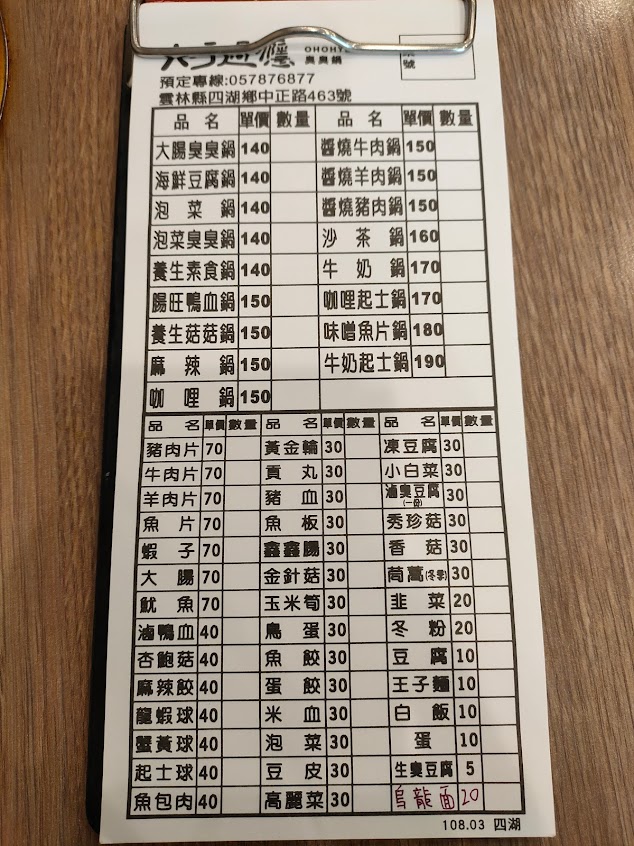 OHOHY
臭臭鍋
號
預定專線:057876877
雲林縣四湖鄉中正路463號
品名 單價 數量 品名 單價 數量
大腸臭臭鍋 140 醬燒牛肉鍋 150
海鮮豆腐鍋 140 醬燒羊肉鍋 150
泡菜鍋 140 醬燒豬肉鍋 150
泡菜臭臭鍋 140 沙茶鍋 160
養生素食鍋 140 牛奶鍋 170
腸旺鴨血鍋 150 咖哩起士鍋 170
養生菇菇鍋 150 味噌魚片鍋 180
麻辣鍋 150 牛奶起士鍋 190
咖哩鍋 150
品名 單價 數量 品名 單價 數量 品名 單價 數量
豬肉片 70 黃金輪 30 凍豆腐 30
牛肉片 70 貢丸 30 小白菜 30
羊肉片 70 豬血 30 滷臭豆腐(一份) 30
魚片 70 魚板 30 秀珍菇 30
蝦子 70 鑫鑫腸 30 香菇 30
大腸 70 金針菇 30 茼萬(冬季) 30
魷魚 70 玉米筍 30 韭菜 20
滷鴨血 40 鳥蛋 30 冬粉 20
杏鮑菇 40 魚餃 30 豆腐 10
麻辣餃 40 蛋餃 30 王子麵 10
龍蝦球 40 米血 30 白飯 10
蟹黃球 40 泡菜 30 蛋 10
起士球 40 豆皮 30 生臭豆腐 5
魚包肉 40 高麗菜 30 烏龍面 20
108.03 四湖